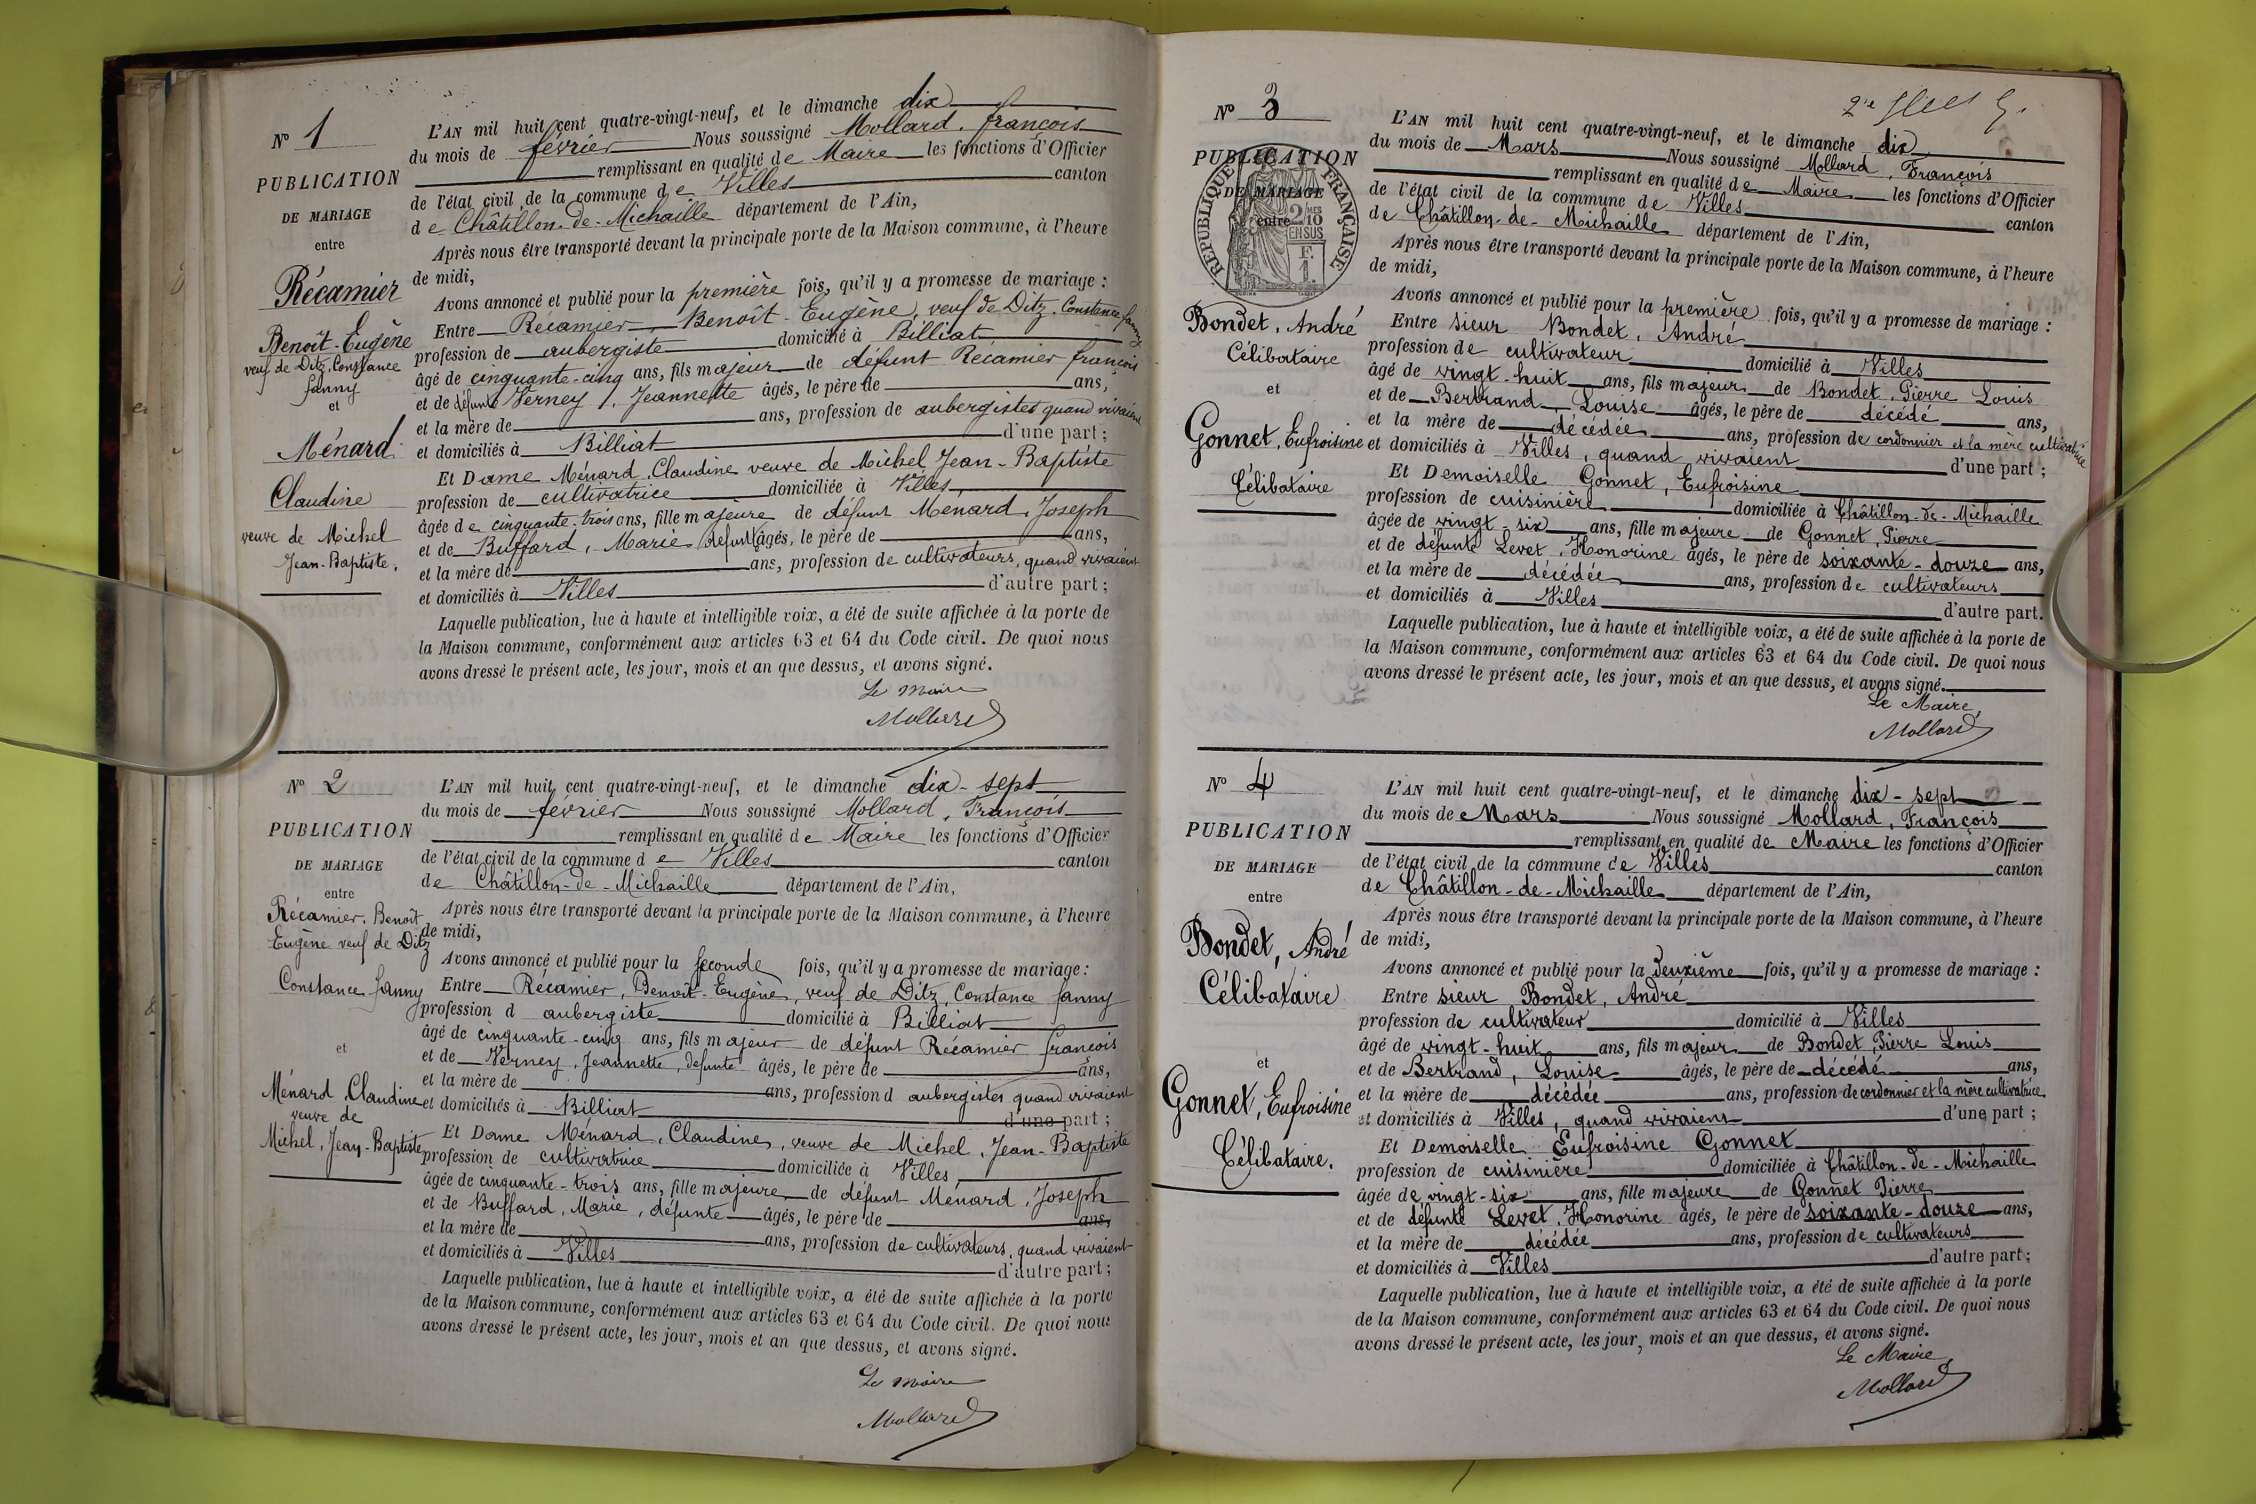 Nº 1
PUBLICATION
DE MARIAGE
entre
Récamier
Benoît-Eugène
veuf de Ditz, Constance
fanny
et
Ménard
Claudine
veuve de Michel
Jean-Baptiste.
L'AN mil huit cent quatre-vingt-neuf, et le dimanche dix
du mois de février Nous soussigné Mollard, françois
remplissant en qualité de Maire les fonctions d'Officier
de l'état civil de la commune de Villes canton
de Châtillon-de-Michaille département de l'Ain,
Après nous être transporté devant la principale porte de la Maison commune, à l'heure
de midi,
Avons annoncé et publié pour la première fois, qu'il y a promesse de mariage :
Entre Récamier Benoît-Eugène, veuf de Ditz, Constance fanny
profession de aubergiste domicilié à Billiat
âgé de cinquante-cinq ans, fils majeur de défunt Récamier françois
et de défunte Verney, Jeannette âgés, le père de ans,
et la mère de ans, profession de aubergistes quand vivaient
et domiciliés à Billiat d'une part ;
Et Dame Ménard, Claudine veuve de Michel Jean-Baptiste
profession de cultivatrice domiciliée à Villes
âgée de cinquante-trois ans, fille majeure de défunt Ménard, Joseph
et de Buffard, Marie défunte âgés, le père de ans,
et la mère de ans, profession de cultivateurs, quand vivaient
et domiciliés à Villes d'autre part ;
Laquelle publication, lue à haute et intelligible voix, a été de suite affichée à la porte de
la Maison commune, conformément aux articles 63 et 64 du Code civil. De quoi nous
avons dressé le présent acte, les jour, mois et an que dessus, et avons signé.
Le maire
Mollard
Nº 2
PUBLICATION
DE MARIAGE
entre
Récamier, Benoît
Eugène veuf de Ditz
Constance fanny
et
Ménard, Claudine
veuve de
Michel, Jean-Baptiste
L'AN mil huit cent quatre-vingt-neuf, et le dimanche dix-sept
du mois de février Nous soussigné Mollard, François
remplissant en qualité de Maire les fonctions d'Officier
de l'état civil de la commune de Villes canton
de Châtillon-de-Michaille département de l'Ain,
Après nous être transporté devant la principale porte de la Maison commune, à l'heure
de midi,
Avons annoncé et publié pour la seconde fois, qu'il y a promesse de mariage :
Entre Récamier, Benoît-Eugène, veuf de Ditz, Constance fanny
profession d aubergiste domicilié à Billiat
âgé de cinquante-cinq ans, fils majeur de défunt Récamier françois
et de Verney, Jeannette, défunte âgés, le père de ans,
et la mère de ans, profession d aubergistes quand vivaient
et domiciliés à Billiat d'une part ;
Et Dame Ménard, Claudine, veuve de Michel, Jean-Baptiste
profession de cultivatrice domiciliée à Villes,
âgée de cinquante-trois ans, fille majeure de défunt Ménard, Joseph
et de Buffard, Marie, défunte âgés, le père de ans,
et la mère de ans, profession de cultivateurs, quand vivaient
et domiciliés à Villes d'autre part ;
Laquelle publication, lue à haute et intelligible voix, a été de suite affichée à la porte
de la Maison commune, conformément aux articles 63 et 64 du Code civil. De quoi nous
avons dressé le présent acte, les jour, mois et an que dessus, et avons signé.
Le maire
Mollard
Nº 3
PUBLICATION
DE MARIAGE
entre
RÉPUBLIQUE FRANÇAISE
2/10
EN SUS
F.
1.
Bondet, André
Célibataire
et
Gonnet, Eufroisine
Célibataire
L'AN mil huit cent quatre-vingt-neuf, et le dimanche dix
du mois de Mars Nous soussigné Mollard, François
remplissant en qualité de Maire les fonctions d'Officier
de l'état civil de la commune de Villes canton
de Châtillon-de-Michaille département de l'Ain,
Après nous être transporté devant la principale porte de la Maison commune, à l'heure
de midi,
Avons annoncé et publié pour la première fois, qu'il y a promesse de mariage :
Entre sieur Bondet, André
profession de cultivateur domicilié à Villes
âgé de vingt-huit ans, fils majeur de Bondet, Pierre Louis
et de Bertrand, Louise âgés, le père de décédé ans,
et la mère de décédée ans, profession de cordonnier et la mère cultivatrice
et domiciliés à Villes, quand vivaient d'une part ;
Et Demoiselle Gonnet, Eufroisine
profession de cuisinière domiciliée à Châtillon-de-Michaille
âgée de vingt-six ans, fille majeure de Gonnet, Pierre
et de défunte Levet, Honorine âgés, le père de soixante-douze ans,
et la mère de décédée ans, profession de cultivateurs
et domiciliés à Villes d'autre part.
Laquelle publication, lue à haute et intelligible voix, a été de suite affichée à la porte de
la Maison commune, conformément aux articles 63 et 64 du Code civil. De quoi nous
avons dressé le présent acte, les jour, mois et an que dessus, et avons signé.
Le Maire,
Mollard
Nº 4
PUBLICATION
DE MARIAGE
entre
Bondet, André
Célibataire
et
Gonnet, Eufroisine
Célibataire.
L'AN mil huit cent quatre-vingt-neuf, et le dimanche dix-sept
du mois de Mars Nous soussigné Mollard, François
remplissant en qualité de Maire les fonctions d'Officier
de l'état civil de la commune de Villes canton
de Châtillon-de-Michaille département de l'Ain,
Après nous être transporté devant la principale porte de la Maison commune, à l'heure
de midi,
Avons annoncé et publié pour la deuxième fois, qu'il y a promesse de mariage :
Entre sieur Bondet, André
profession de cultivateur domicilié à Villes
âgé de vingt-huit ans, fils majeur de Bondet, Pierre Louis
et de Bertrand, Louise âgés, le père de décédé ans,
et la mère de décédée ans, profession de cordonnier et la mère cultivatrice
et domiciliés à Villes, quand vivaient d'une part ;
Et Demoiselle Eufroisine Gonnet
profession de cuisinière domiciliée à Châtillon-de-Michaille
âgée de vingt-six ans, fille majeure de Gonnet Pierre
et de défunte Levet, Honorine âgés, le père de soixante-douze ans,
et la mère de décédée ans, profession de cultivateurs
et domiciliés à Villes d'autre part ;
Laquelle publication, lue à haute et intelligible voix, a été de suite affichée à la porte
de la Maison commune, conformément aux articles 63 et 64 du Code civil. De quoi nous
avons dressé le présent acte, les jour, mois et an que dessus, et avons signé.
Le Maire,
Mollard